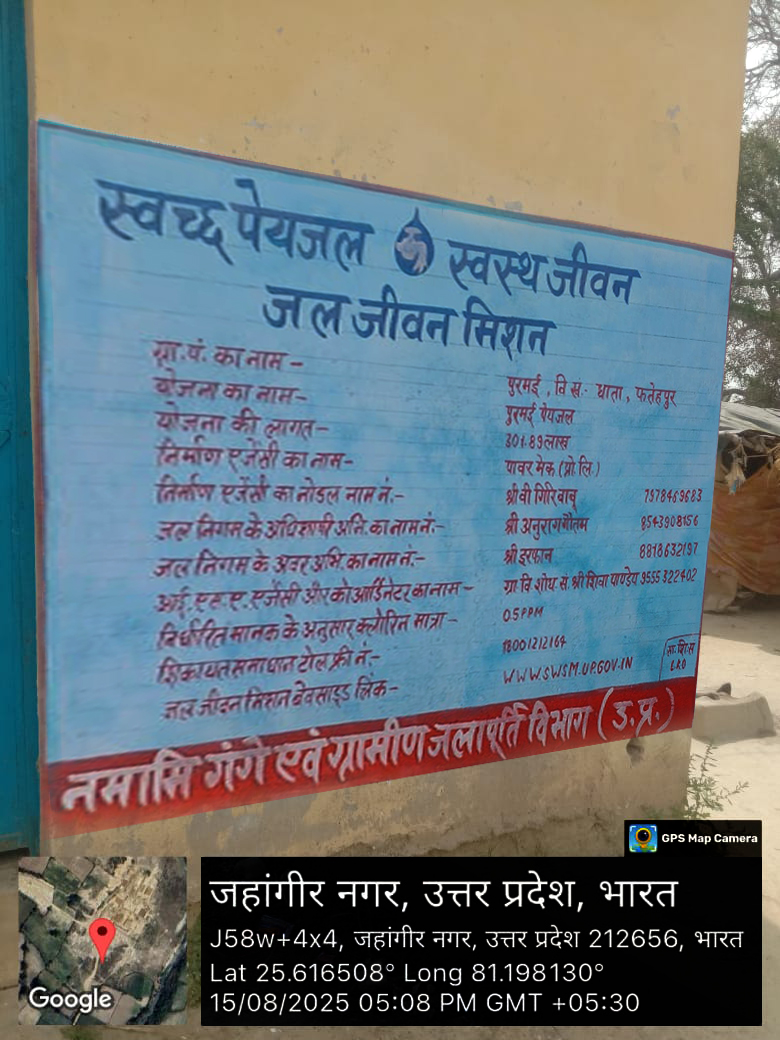 स्वच्छ पेयजल स्वस्थ जीवन
जल जीवन मिशन
ग्रा.पं. का नाम - पुरमई, वि.ख.- धाता, फतेहपुर
योजना का नाम- पुरमई पेयजल
योजना की लागत- 301.89 लाख
निर्माण एजेंसी का नाम- पावर मेक (प्रो.लि.)
निर्माण एजेंसी का नोडल नाम नं.- श्री वी गिरि बाबू 7978469683
जल निगम के अधिशाषी अभि. का नाम नं.- श्री अनुराग गौतम 8543908156
जल निगम के अवर अभि. का नाम नं.- श्री इरफान 8818632197
आई.एस.ए. एजेंसी और को आर्डिनेटर का नाम- ग्रा वि शोध. सं. श्री शिवा पाण्डेय 9555322402
निर्धारित मानक के अनुसार क्लोरिन मात्रा- 05PPM
शिकायत समाधान टोल फ्री नं.- 18001212164
जल जीवन मिशन बेवसाइड लिंक- WWW.SWSM.UP.GOV.IN
नमामि गंगे एवं ग्रामीण जलापूर्ति विभाग (उ.प्र.)
GPS Map Camera
जहांगीर नगर, उत्तर प्रदेश, भारत
J58w+4x4, जहांगीर नगर, उत्तर प्रदेश 212656, भारत
Lat 25.616508° Long 81.198130°
15/08/2025 05:08 PM GMT +05:30
Google